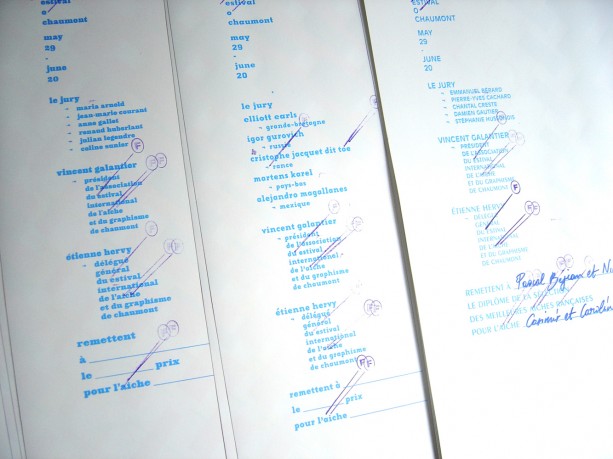 estival
o
chaumont
may
29
-
june
20
le jury
- maria arnold
- jean-marie courant
- anne gallet
- renaud huberlant
- julian legendre
- celine sunier
vincent galantier
- président
de l'association
du estival
international
de l'aîche
et du graphisme
de chaumont
étienne hervy
- délégué
général
du estival
international
de l'aîche
et du graphisme
de chaumont
remettent
à
le prix
pour l'aîche
F
FF
F
FF
F
FF
estival
o
chaumont
may
29
-
june
20
le jury
elliott earls
- grande-bretagne
igor gurovich
- russie
h
cristophe jacquet dit toe
- rance
mortens korel
- pays-bas
alejandro magallanes
- mexique
vincent galantier
- président
de l'association
du estival
international
de l'aîche
et du graphisme
de chaumont
étienne hervy
- délégué
général
du estival
international
de l'aîche
et du graphisme
de chaumont
remettent à
le prix
pour l'aîche
F
F
F
FF
F
FF
FF
ESTIVAL
O
CHAUMONT
MAY
29
-
JUNE
20
LE JURY
- EMMANUEL BÉRARD
- PIERRE-YVES CACHARD
- CHANTAL CRESTE
- DAMIEN GAUTIER
- STÉPHANIE
VINCENT GALANTIER
- PRÉSIDENT
DE L'ASSOCIATION
DU ESTIVAL
INTERNATIONAL
DE L'AÎCHE
ET DU GRAPHISME
DE CHAUMONT
ÉTIENNE HERVY
- DÉLÉGUÉ
GÉNÉRAL
DU ESTIVAL
INTERNATIONAL
DE L'AÎCHE
ET DU GRAPHISME
DE CHAUMONT
REMETTENT À Pascal Béjean et
LE DIPLÔME DE LA SÉLECTION
DES MEILLEURES AÎCHES RANÇAISES
POUR L'AÎCHE Casimir et
F
FF
F
FF